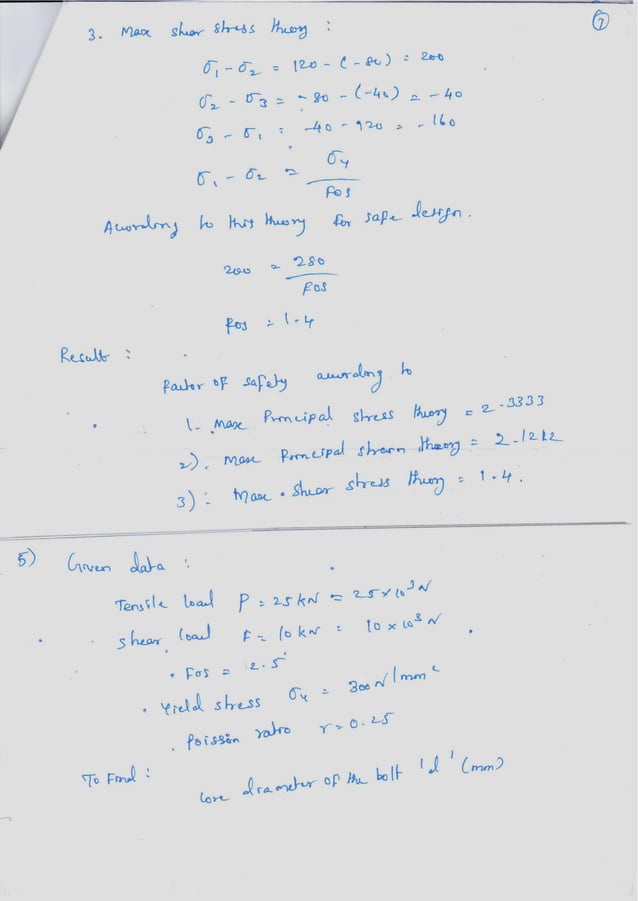 7
3. Max shear stress theory :
σ1 - σ2 = 120 - (-80) = 200
σ2 - σ3 = -80 - (-40) = -40
σ3 - σ1 = -40 - 120 = -160
σ1 - σ2 = σy / FOS
According to this theory for safe design.
200 = 280 / FOS
FOS = 1.4
Result :
Factor of safety according to
1. Max Principal stress theory = 2.3333
2). Max Principal strain theory = 2.1212
3): Max. Shear stress theory = 1.4.
5) Given data :
Tensile load P = 25 kN = 25 × 10³ N
shear load F = 10 kN = 10 × 10³ N
FOS = 2.5
Yield stress σy = 300 N/mm²
Poisson ratio r = 0.25
To Find :
Core diameter of the bolt 'd' (mm)